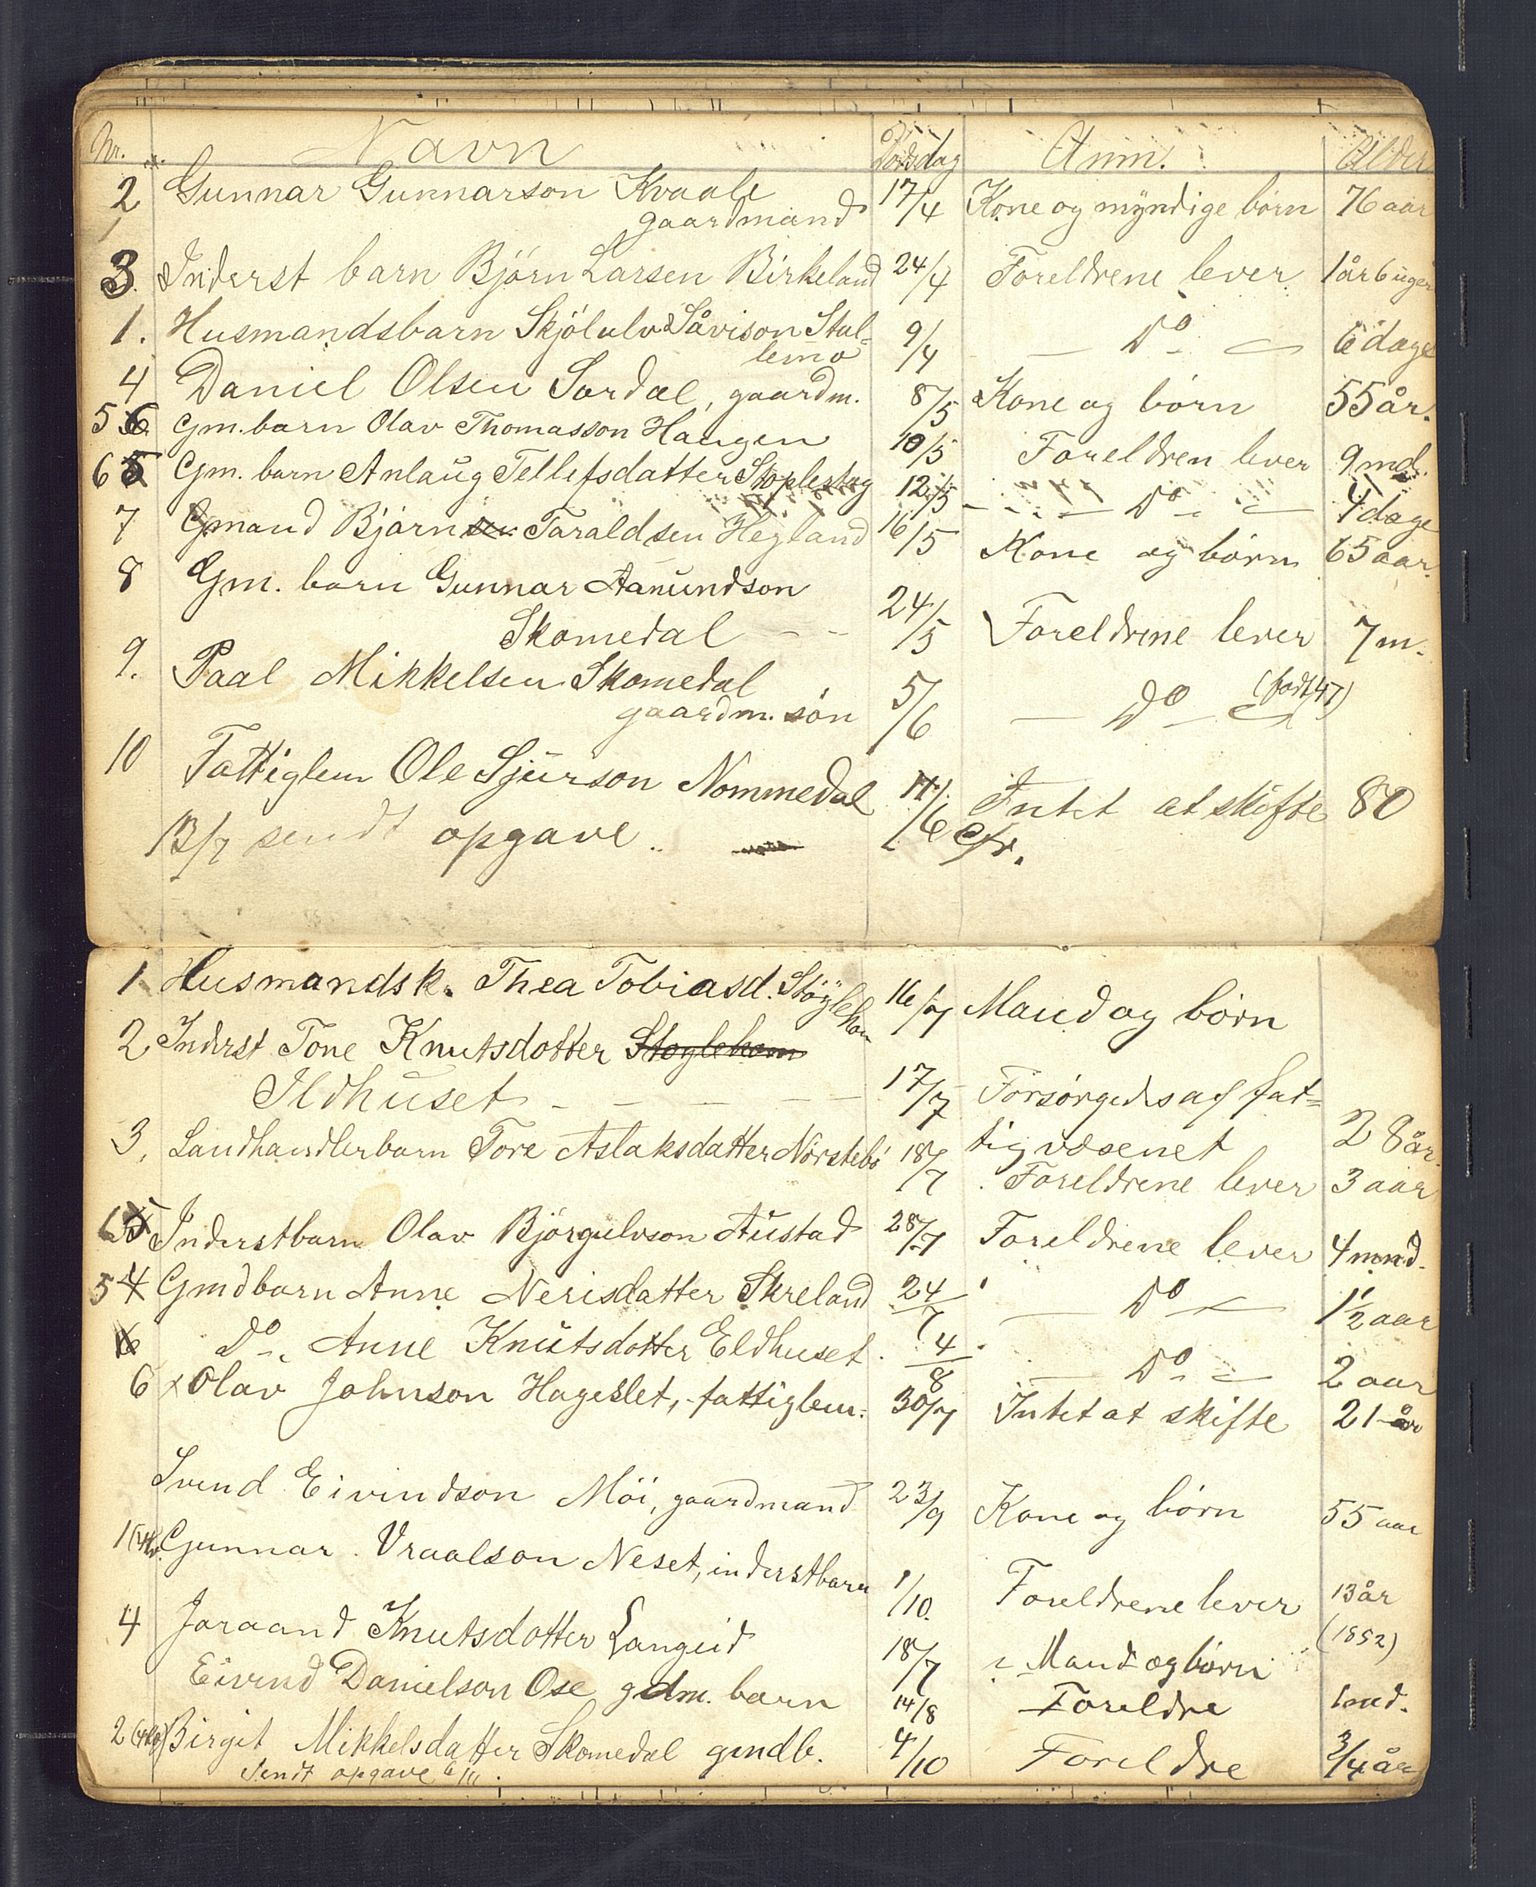 Nr. Navn Dødsdag Anm. Alder
2 Gunnar Gunnarson Kvaale 17/4 Kone og myndige børn 76 aar
gaardmand
3. Inderst barn Bjørn Larsen Birkeland 24/4 Foreldrene lever 1 år 6 uger
1. Husmandsbarn Skjølulv Såvison Stal- 9/4 — Do — 6 dage
lemo
4 Daniel Olsen Sordal, gaardm. 8/5 Kone og børn 55 år.
5 Gm. barn Olav Thomasson Haugen 10/5 Foreldren lever 9 md.
6 Gm. barn Anlaug Tellefsdatter Stoplestøg 12/5 — Do — 4 dage
7 Gmand Bjørn Taraldsen Hegland 16/5 Kone og børn 65 aar.
8 Gm. barn Gunnar Aanundson
Skomedal — — 24/5 Foreldrene lever 7 m.
9. Paal Mikkelsen Skomedal 5/6 — Do — (født 47)
gaardm. søn
10 Fattiglem Ole Sjurson Nommedal 11/6 Intet at skifte 80
13/7 sendt opgave. efr.
1 Husmandsk. Thea Tobiasd. Støylehom 16/7 Mand og børn
2 Inderst Tone Knutsdotter Stoylehom
Ildhuset — — — — 17/7 Forsørgedes af fat-
tigvæsenet 28 år.
3, Landhandlerbarn Tore Aslaksdatter Nørstebø 18/7 Foreldrene lever 3 aar
Inderstbarn Olav Bjørgulvson Austad 28/7 Foreldrene lever 4 mnd.
5 4 Gmdbarn Anne Nerisdatter Skreland 24/7 — Do — 1 1/2 aar
6 Do Anne Knutsdotter Eldhuset. 4/8 — Do — 2 aar
6 x Olav Johnson Hageslet, fattiglem. 30/7 Intet at skifte 21 år
Svend Eivindson Möi, gaardmand 23/9 Kone og børn 55 aar
1 Gunnar Vraalson Neset, inderstbarn 1/10. Foreldrene lever 13 år
4 Joraand Knutsdotter Langeid 18/7 Mand og børn (1852)
Eivind Danielson Ose gdm. barn 14/8 Foreldre 1 md.
2 Birgit Mikkelsdatter Skomedal gmdb. 4/10 Foreldre 3/4 år
Sendt opgave 6/11.